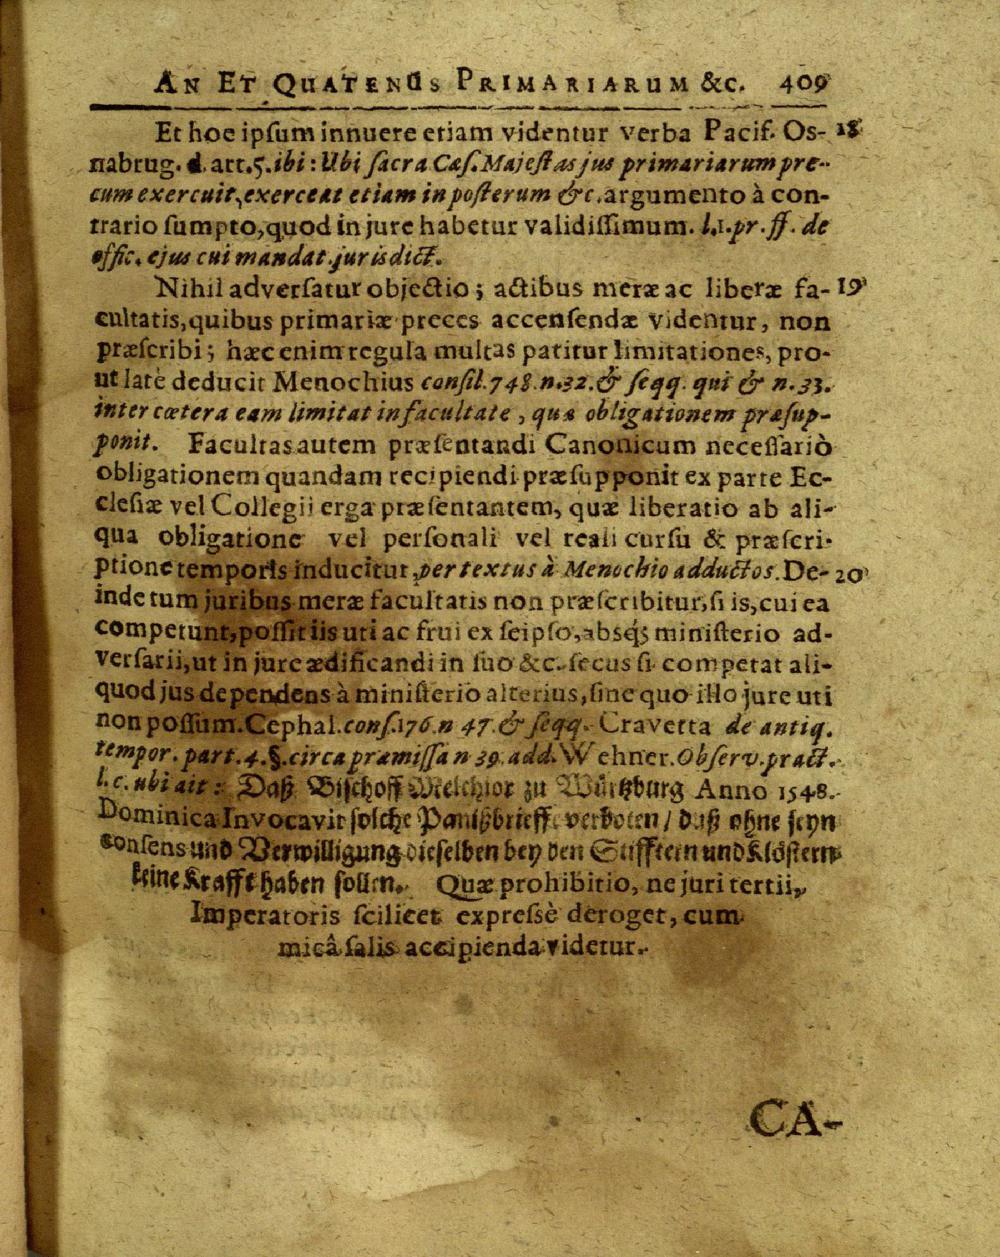 An Et Quatenus Primariarum &c. 409
Et hoc ipſum innuere etiam videntur verba Pacif. Os- 18
nabrug. d. art. 5. ibi: Ubi ſacra Cæſ. Majeſtas jus primariarum pre-
cum exercuit, exerceat etiam in poſterum &c. argumento à con-
trario ſumpto, quod in jure habetur validiſſimum. l. 1. pr. ff. de
offic. ejus cui mandat. jurisdict.
Nihil adverſatur objectio; actibus meræ ac liberæ fa- 19
cultatis, quibus primariæ preces accenſendæ videntur, non
præſcribi; hæc enim regula multas patitur limitationes, pro-
ut latè deducit Menochius conſil. 748. n. 32. & ſeqq. qui & n. 33.
inter cœtera eam limitat in facultate, quæ obligationem præſup-
ponit. Facultas autem præſentandi Canonicum neceſſariò
obligationem quandam recipiendi præſupponit ex parte Ec-
cleſiæ vel Collegii erga præſentantem, quæ liberatio ab ali-
qua obligatione vel perſonali vel reali curſu & præſcri-
ptione temporis inducitur, per textus à Menochio adductos. De- 20
inde tum juribus meræ facultatis non præſcribitur, ſi is, cui ea
competunt, poſſit iis uti ac frui ex ſeipſo, absq; miniſterio ad-
verſarii, ut in jure ædificandi in ſuo &c. ſecus ſi competat ali-
quod jus dependens à miniſterio alterius, ſine quo illo jure uti
non poſſum. Cephal. conſ. 176. n 47. & ſeqq. Cravetta de antiq.
tempor. part. 4. §. circa præmiſſa n 39. add. Wehner. Obſerv. pract.
l. c. ubi ait: Daß Biſchoff Melchior zu Würtzburg Anno 1548.
Dominica Invocavit ſolche Panißbrieff verboten / daß ohne ſeyn
Conſens und Verwilligung dieſelben bey den Stifftern und Klöſtern
keine Krafft haben ſollen. Quæ prohibitio, ne juri tertii,
Imperatoris ſcilicet expreſsè deroget, cum
micâ ſalis accipienda videtur.
CA-